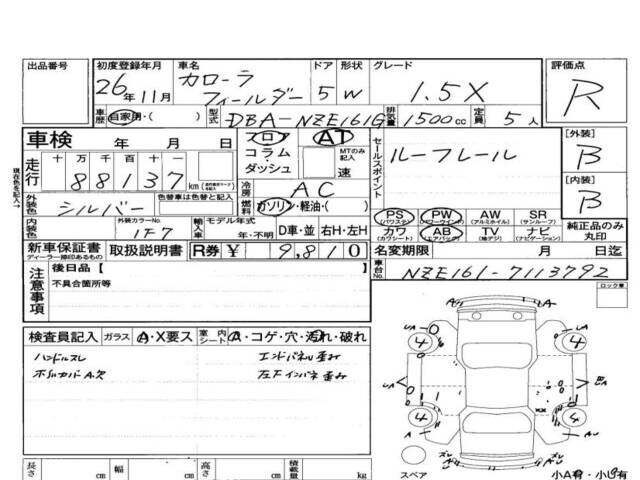 出品番号
初度登録年月
26年11月
車名
カローラ
フィールダー
ドア
5
形状
W
グレード
1.5X
評価点
R
車歴
自家用・( )
型式
DBA-NZE161G
排気量
1500cc
定員
5人
車検 年 月 日
フロア
コラム・
ダッシュ
AT
MTのみ記入
速
セールスポイント
ルーフレール
[外装]
B
[内装]
B
現在色を記入→
走行
十万千百十一
88137km
冷房
AC
燃料
ガソリン・軽油・( )
外装色
シルバー
色替車は色替と記入
内装色
外装カラーNo.
1F7
輸入車
モデル年式
年・不明
D車・並 右H・左H
PS
(パワステ)
PW
(パワーウインド)
AW
(アルミホイル)
SR
(サンルーフ)
カワ
(カワシート)
AB
(エアバック)
TV
(純デジ)
ナビ
(ナビゲーション)
純正品のみ
丸印
新車保証書
ディーラー捺印あるもの
取扱説明書
R券 ¥ 9,810
名変期限 月 日迄
車台No.
NZE161-7113792
注意事項
後日品【
不具合箇所等
ロック車
検査員記入 ガラス A・X要ス 室内シート A・コゲ・穴・汚れ・破れ
ハンドルスレ
エンドパネル歪み
左Fインパネ歪み
A
A
4
4
4
4
スペア
小A有・小U有
長さ cm 幅 cm 高さ cm 積載量 kg